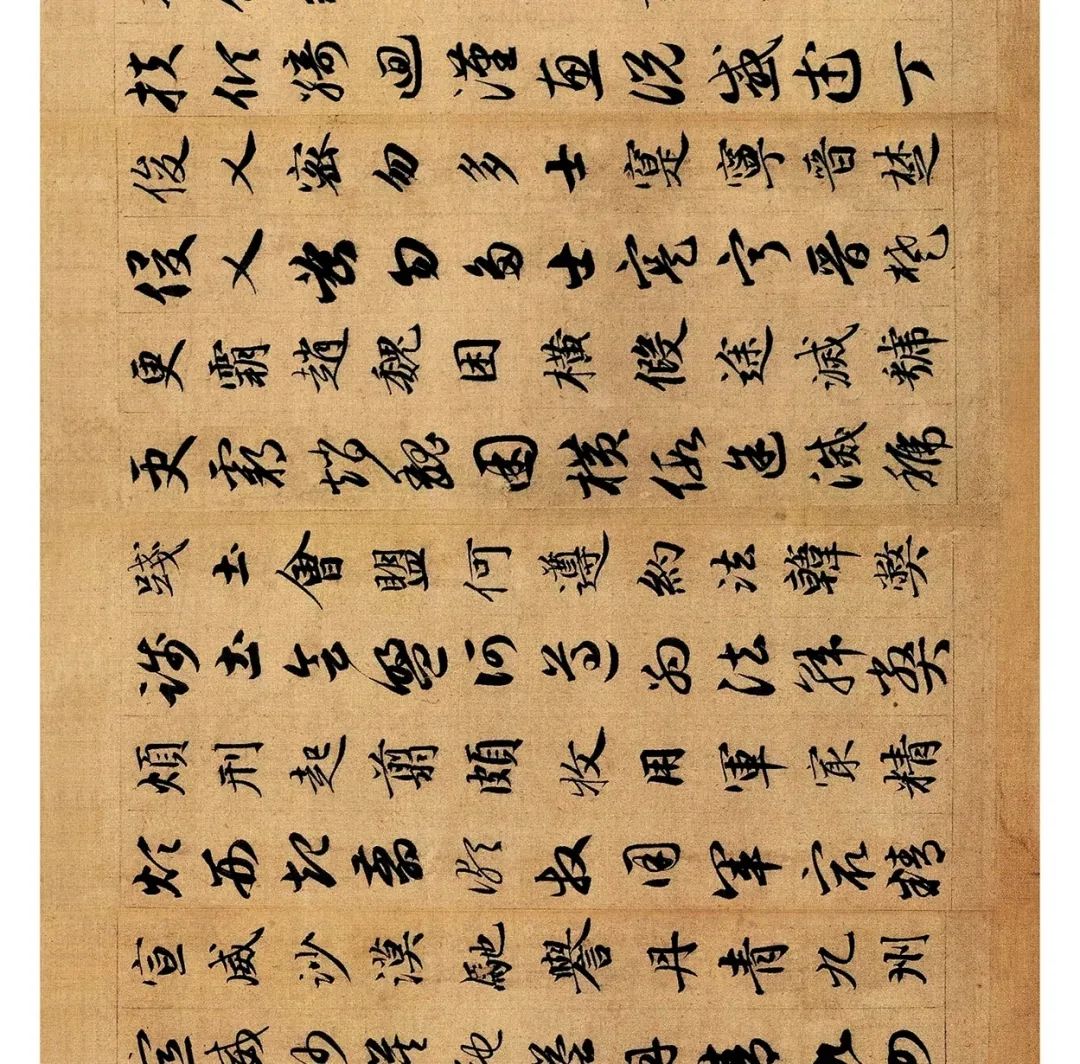 扶傾綺迴漢惠説感武丁
俊乂密勿多士寔寧晉楚
俊乂密勿多士寔寧晉楚
更霸趙魏困橫假途滅虢
更霸趙魏困橫假途滅虢
踐土會盟何遵約法韓弊
踐土會盟何遵約法韓弊
煩刑起翦頗牧用軍㝡精
煩刑起翦頗牧用軍㝡精
宣威沙漠馳譽丹青九州
宣威沙漠馳譽丹青九州